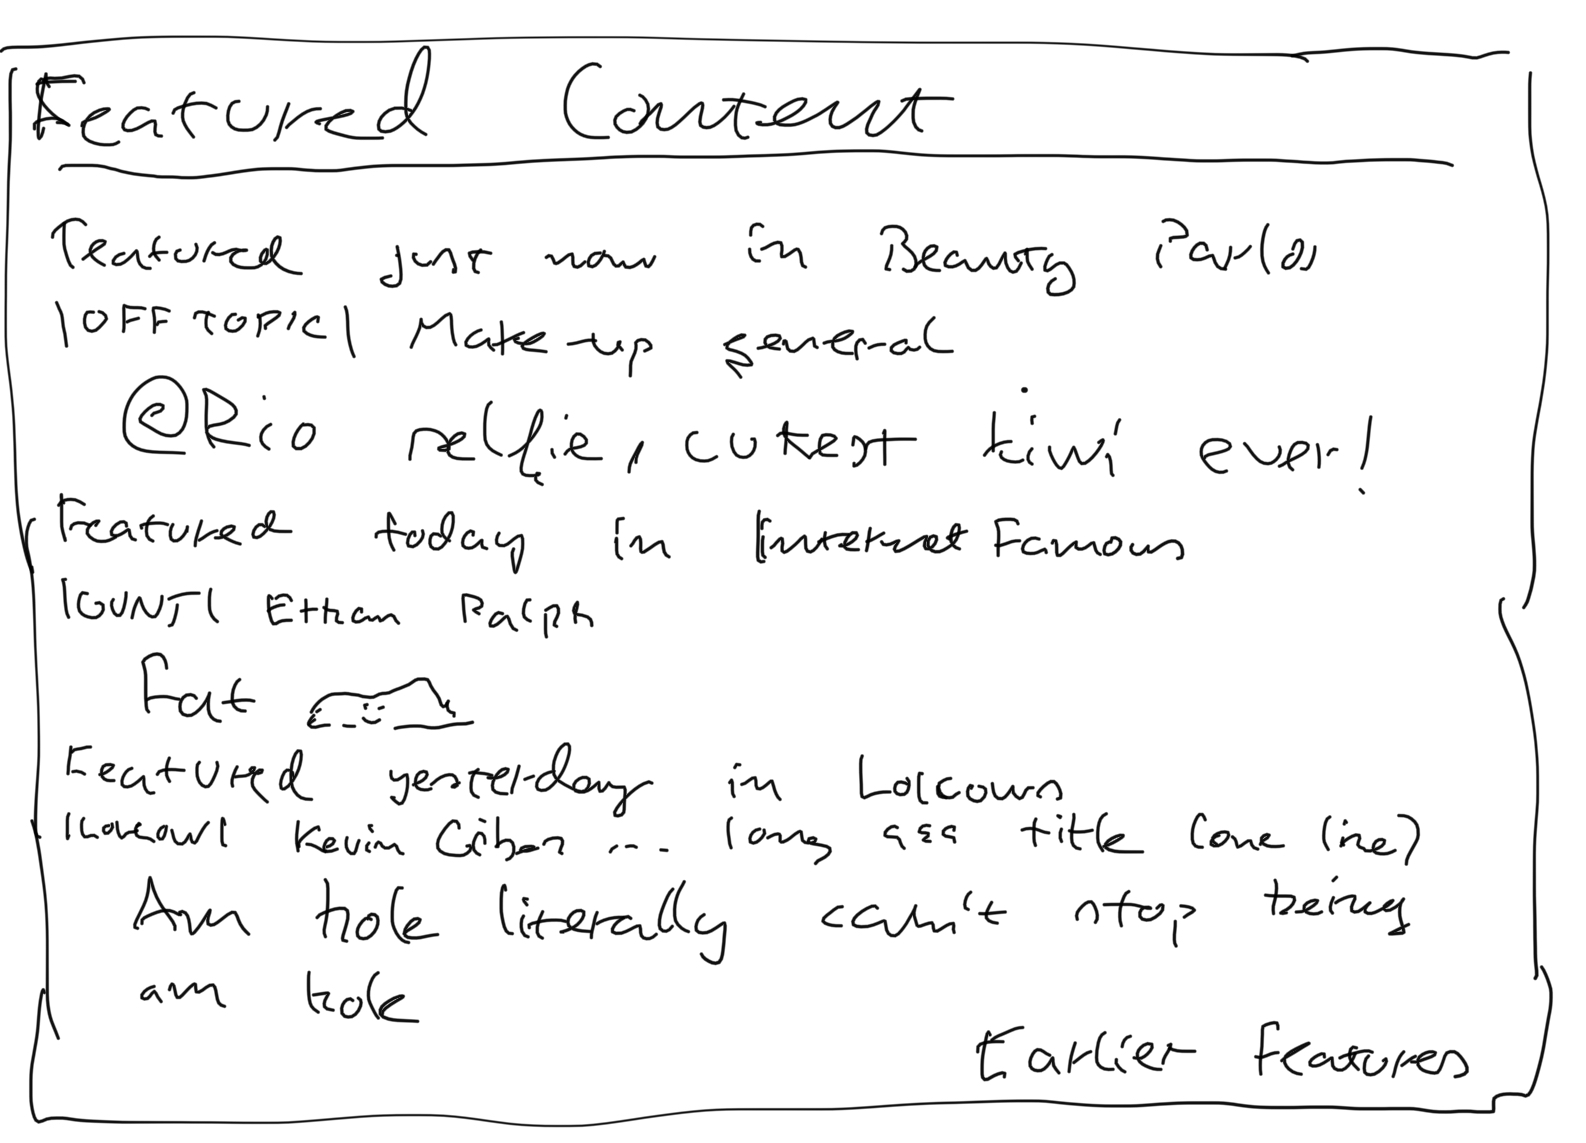 Featured Content
Featured just now in Beauty Parlor
|OFF TOPIC| Make-up general
@Rio selfie, cutest kiwi ever!
Featured today in Internet Famous
|GUNT| Ethan Ralph
Fat
Featured yesterday in Lolcows
Kevin Gibes ... long ass title (one line)
Am hole literally can't stop being
am hole
Earlier Features